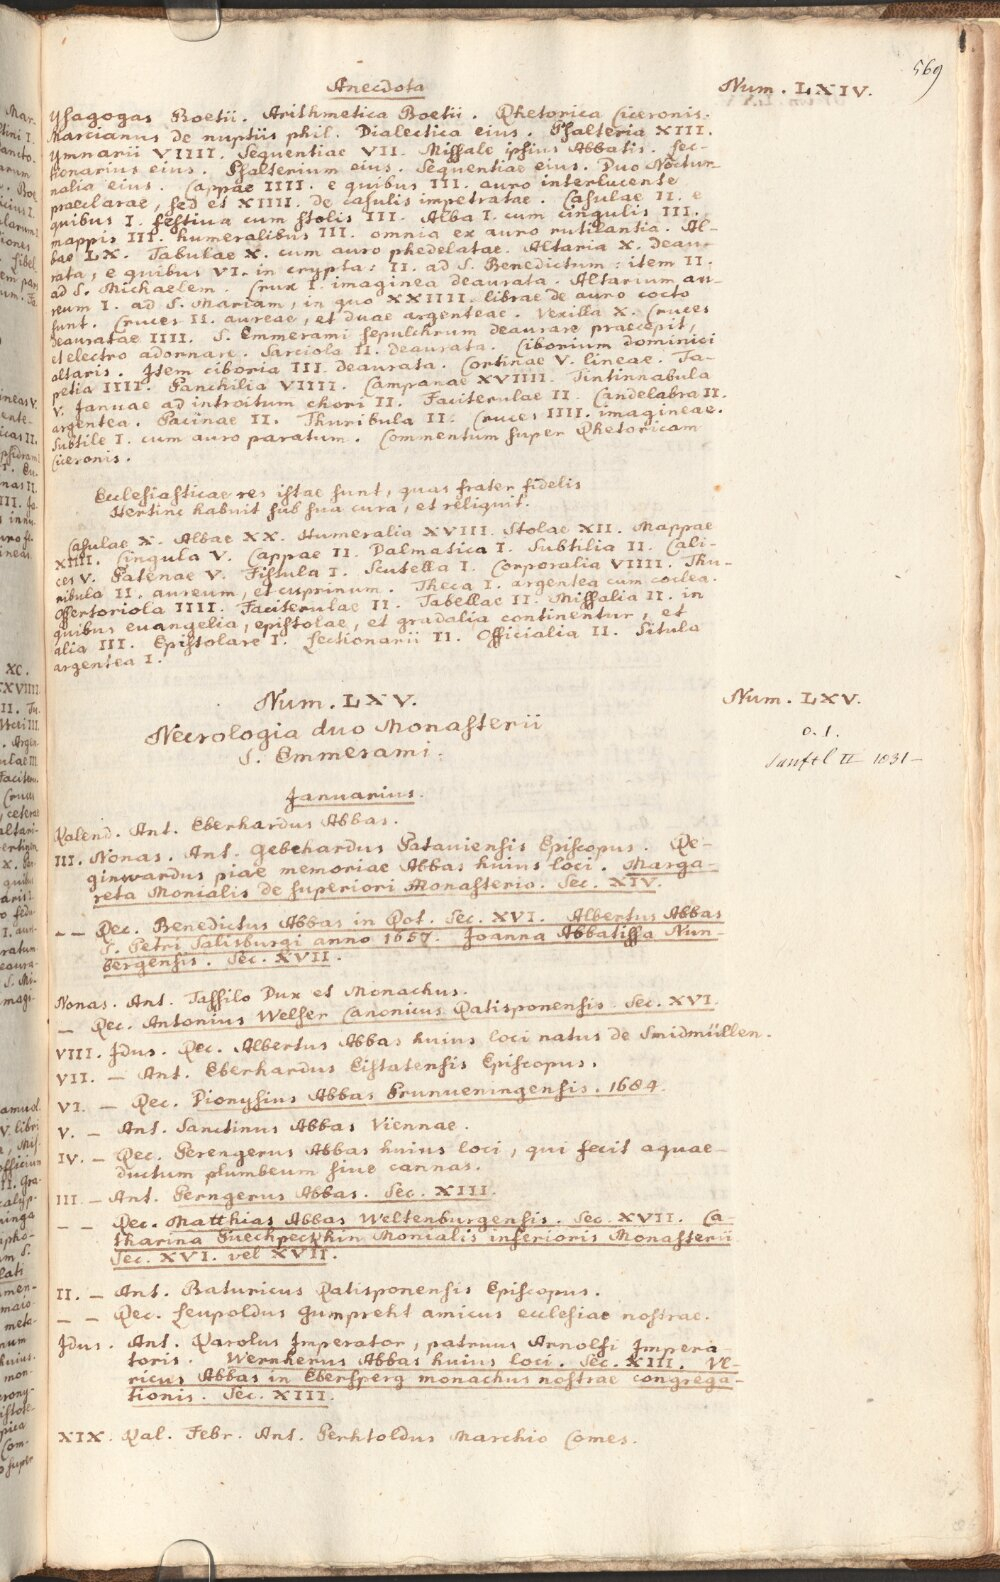 569
Anecdota
Num. LXIV.
Ysagogas Boetii. Arithmetica Boetii. Rhetorica Ciceronis.
Marcianus de nuptiis phil. Dialectica eius. Psalteria XIII.
Ymnarii VIIII. Sequentiae VII. Missale ipsius Abbatis. Lec-
tionarius eius. Psalterium eius. Sequentiae eius. Duo Noctur-
nalia eius. Cappae IIII. e quibus III. auro interlucente
praeclarae, sed et XIIII. de casulis impetratae. Casulae II. e
quibus I. festiva cum stolis III. Alba I. cum cingulis III.
mappis III. humeralibus III. omnia ex auro rutilantia. Al-
bae LX. Tabulae X. cum auro phedelatae. Altaria X. deau-
rata, e quibus VI. in crypta: II. ad S. Benedictum: item II.
ad S. Michaelem. Crux I. imaginea deaurata. Altarium au-
reum I. ad S. Mariam, in quo XXIIII. librae de auro cocto
sunt. Cruces II. aureae, et duae argenteae. Vexilla X. Cruces
deauratae IIII. S. Emmerami sepulchrum deaurare praecepit,
et electro adornare. Sarciola II. deaurata. Ciborium dominici
altaris. Item ciboria III. deaurata. Cortinae V. lineae. Ta-
petia IIII. Panchilia VIIII. Campanae XVIIII. Tintinnabula
V. Januae ad introitum chori II. Faciterulae II. Candelabra II.
argentea. Pacinae II. Thuribula II. Cruces IIII. imagineae.
Subtile I. cum auro paratum. Commentum super Rhetoricam
Ciceronis.
Ecclesiasticae res istae sunt, quas frater fidelis
Hertinc habuit sub sua cura, et reliquit.
Casulae X. Albae XX. Humeralia XVIII. Stolae XII. Mappae
XIIII. Cingula V. Cappae II. Dalmatica I. Subtilia II. Cali-
ces V. Patenae V. Fistula I. Scutella I. Corporalia VIIII. Thu-
ribula II. aureum, et cuprinum. Theca I. argentea cum coclea.
Offertoriola IIII. Faciterulae II. Tabellae II. Missalia II. in
quibus euangelia, epistolae, et gradalia continentur, et
alia III. Epistolare I. Lectionarii II. Officialia II. Situla
argentea I.
Num. LXV.
Num. LXV.
Necrologia duo Monasterii
S. Emmerami.
Sanftl II 1031
Januarius.
Kalend. Ant. Eberhardus Abbas.
III. Nonas. Ant. Gebehardus Patauiensis Episcopus. Re-
ginwardus piae memoriae Abbas huius loci. Marga-
reta Monialis de superiori Monasterio. Sec. XIV.
-- Rec. Benedictus Abbas in Rot. Sec. XVI. Albertus Abbas
S. Petri Salisburgi anno 1657. Joanna Abbatissa Nun-
bergensis. Sec. XVII.
Nonas. Ant. Tassilo Dux et Monachus.
- Rec. Antonius Welser Canonicus Ratisponensis. Sec. XVI.
VIII. Idus. Rec. Albertus Abbas huius loci natus de Smidmüllen.
VII. - Ant. Eberhardus Eistatensis Episcopus.
VI. - Rec. Dionysius Abbas Prunueningensis. 1684.
V. - Ant. Sanctinus Abbas Viennae.
IV. - Rec. Perengerus Abbas huius loci, qui fecit aquae-
ductum plumbeum siue cannas.
III. - Ant. Perngerus Abbas. Sec. XIII.
-- Rec. Matthias Abbas Weltenburgensis. Sec. XVII. Ca-
tharina Puechpeckhin Monialis inferioris Monasterii
Sec. XVI. vel XVII.
II. - Ant. Baturicus Ratisponensis Episcopus.
-- Rec. Leupoldus Gumpreht amicus ecclesiae nostrae.
Idus. Ant. Karolus Imperator, patruus Arnolfi Impera-
toris. Wernherus Abbas huius loci. Sec. XIII. Vl-
ricus Abbas in Ebersperg monachus nostrae congrega-
tionis. Sec. XIII.
XIX. Kal. Febr. Ant. Perhtoldus Marchio Comes.